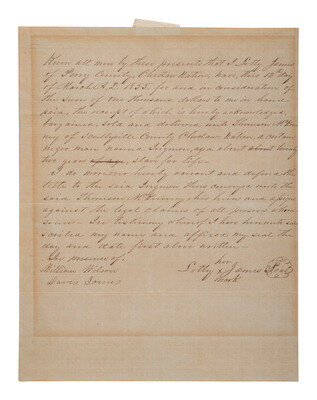 Know all men by these presents that I Lotty James
of Perry County, Choctaw Nation, have, this 12th day
of March A.D. 1855, for and in consideration of
the sum of One thousand dollars to me in hand
paid, the receipt of which is hereby acknowledged
bargained, sold and delivered to Thomson McKin
ney of Scullyville County Choctaw Nation, a certain
negro man named aged about twenty
two years slave for life.
I do moreover hereby warrant and defend the
title to the said thus conveyed unto the
said Thomson McKinney, his heirs and assigns
against the legal claims of all persons whom
soever. In testimony whereof I have hereunto sub
scribed my name and affixed my seal the
day and date first above written -
In presence of.
William Wilson
James
her
Lotty x James Seal
mark